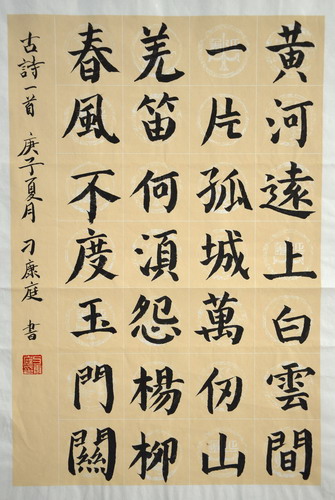 黃河遠上白雲間
一片孤城萬仞山
羌笛何須怨楊柳
春風不度玉門關
古詩一首 庚子夏月 刁康庭 書